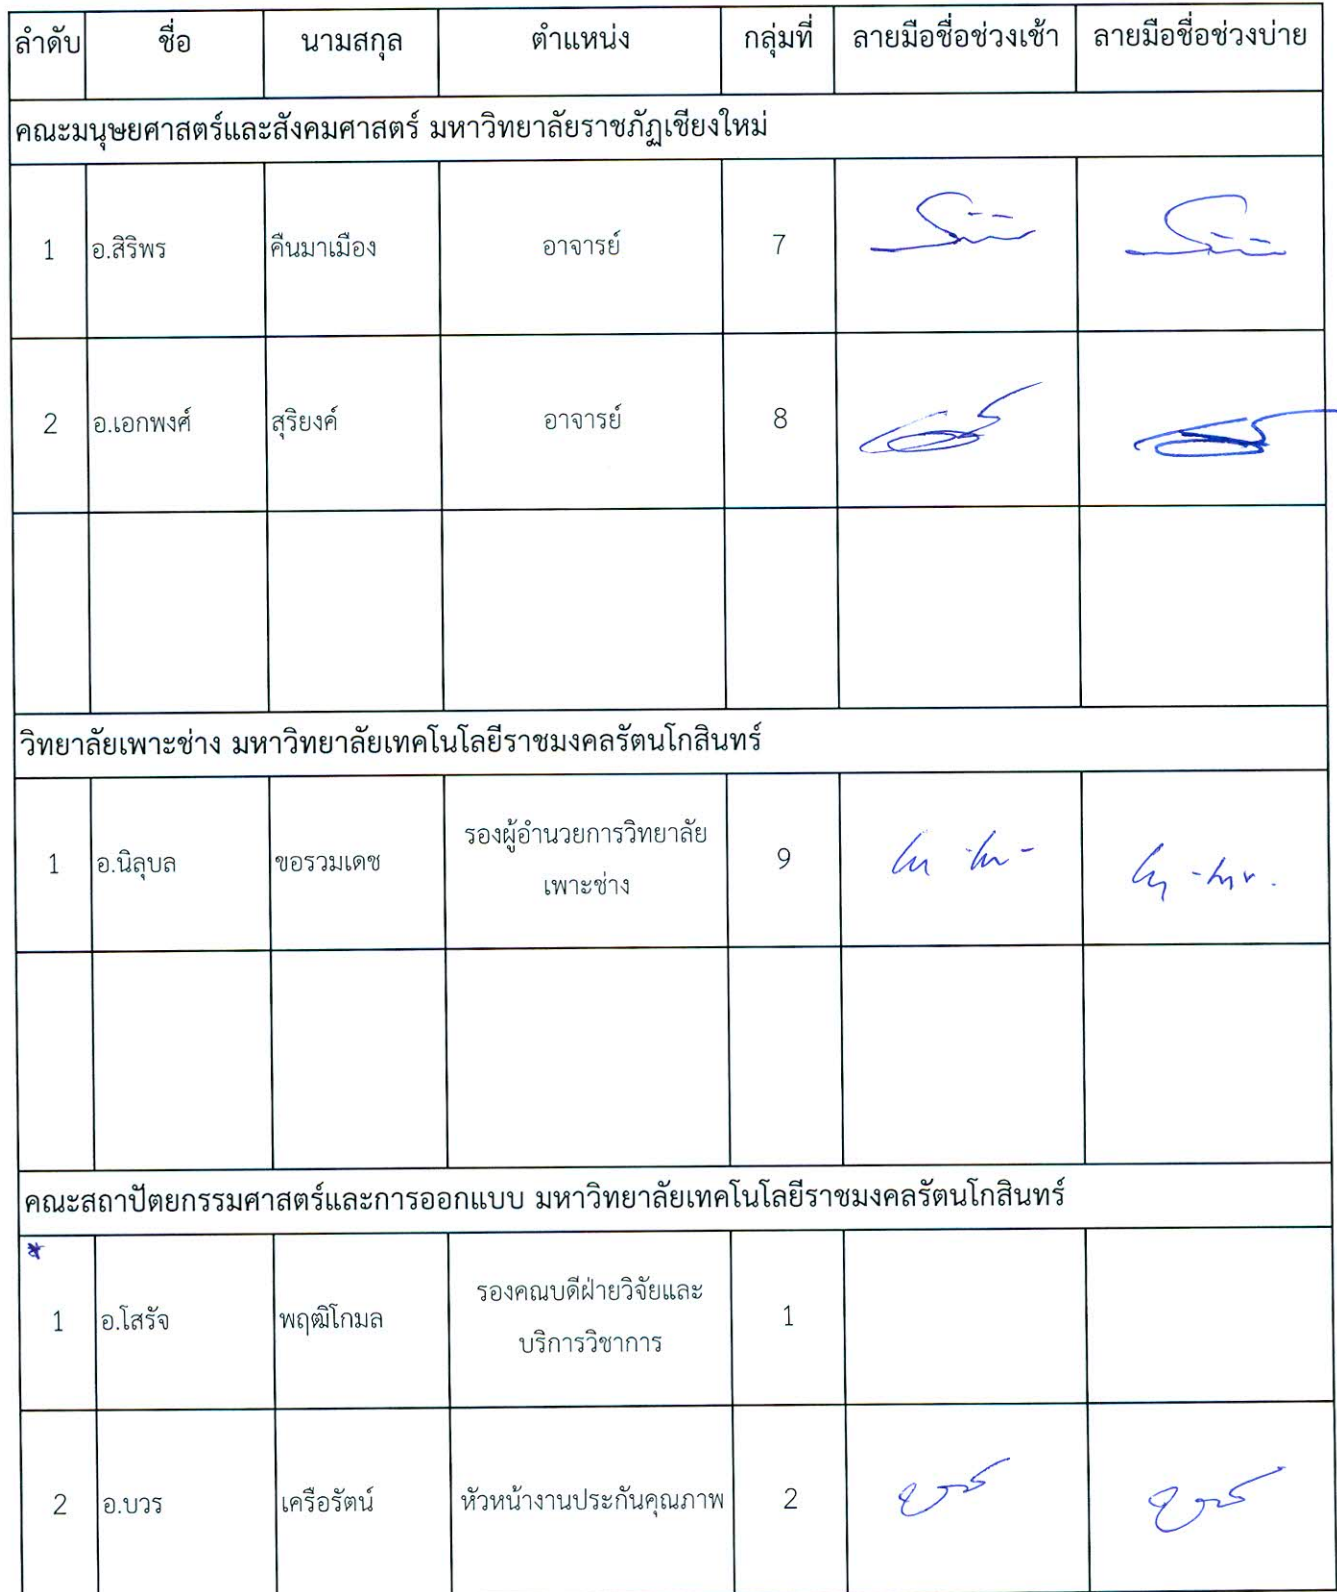 ลำดับ ชื่อ นามสกุล ตำแหน่ง กลุ่มที่ ลายมือชื่อช่วงเช้า ลายมือชื่อช่วงบ่าย
คณะมนุษยศาสตร์และสังคมศาสตร์ มหาวิทยาลัยราชภัฏเชียงใหม่
1 อ.สิริพร คืนมาเมือง อาจารย์ 7
2 อ.เอกพงศ์ สุริยงค์ อาจารย์ 8
วิทยาลัยเพาะช่าง มหาวิทยาลัยเทคโนโลยีราชมงคลรัตนโกสินทร์
1 อ.นิลุบล ขอรวมเดช รองผู้อำนวยการวิทยาลัย 9
เพาะช่าง
คณะสถาปัตยกรรมศาสตร์และการออกแบบ มหาวิทยาลัยเทคโนโลยีราชมงคลรัตนโกสินทร์
1 อ.โสรัจ พฤฒิโกมล รองคณบดีฝ่ายวิจัยและ 1
บริการวิชาการ
2 อ.บวร เครือรัตน์ หัวหน้างานประกันคุณภาพ 2